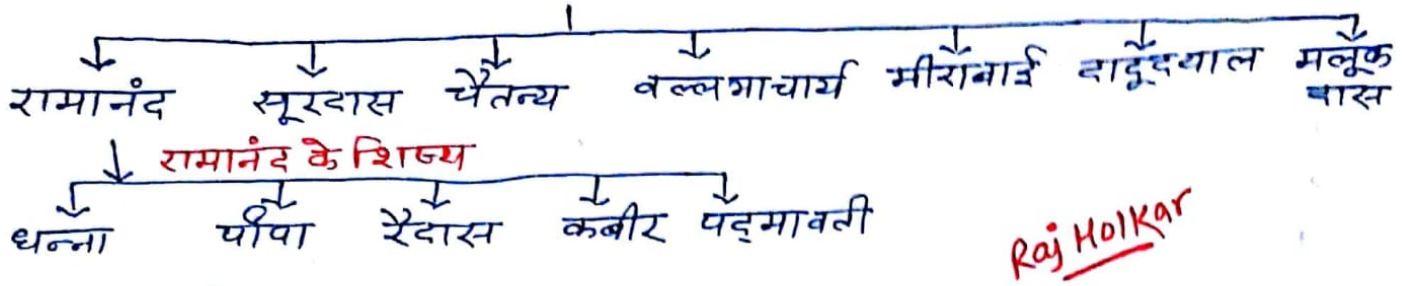 रामानंद सूरदास चैतन्य वल्लभाचार्य मीराबाई दादूदयाल मलूक दास
रामानंद के शिष्य
धन्ना पीपा रैदास कबीर पद्मावती
Raj Holkar